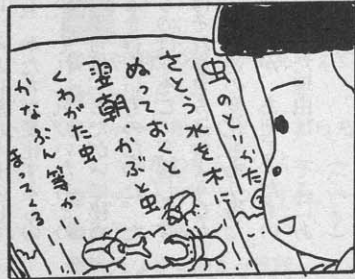 虫のとりかた②
さとう水を木に
ぬっておくと
翌朝、かぶと虫
くわがた虫
かなぶん等が
まってくる